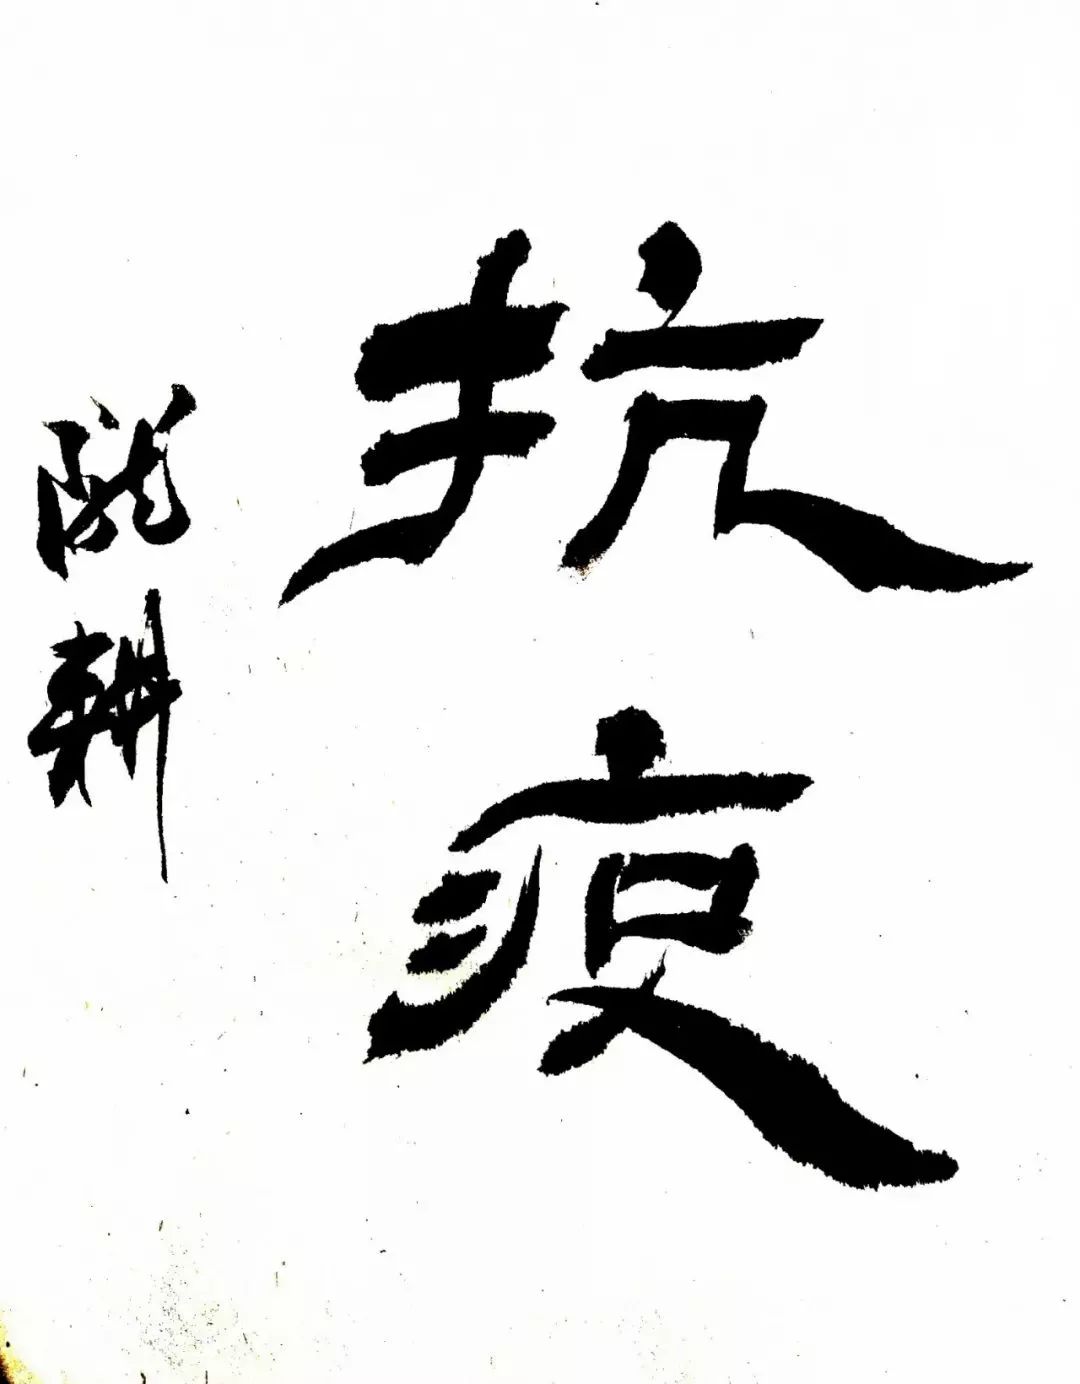 抗疫
陇耕